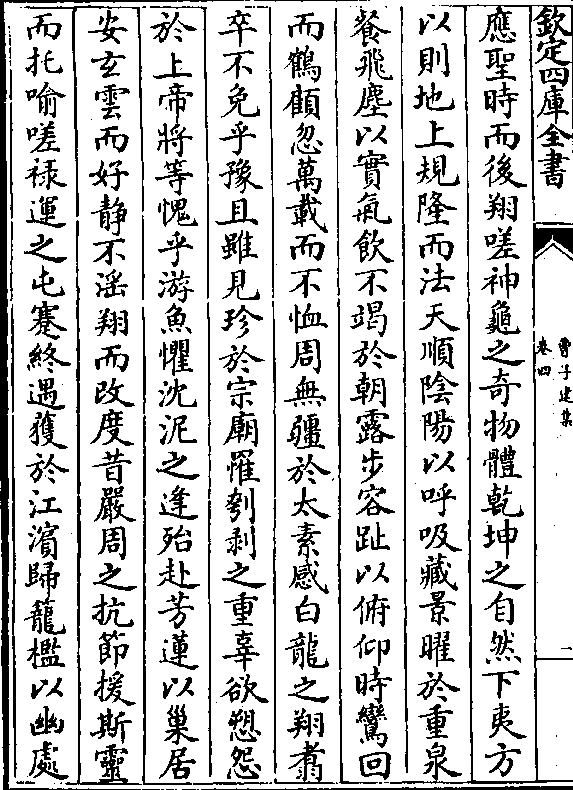 欽定四庫全書
曹子建集
卷四
一
應聖時而後翔嗟神龜之奇物體乾坤之自然下夷方
以則地上規隆而法天順陰陽以呼吸藏景曜於重泉
餐飛塵以實氣飲不竭於朝露步容趾以俯仰時鸞回
而鶴顧忽萬載而不恤周無疆於太素感白龍之翔翥
卒不免乎豫且雖見珍於宗廟罹刳剥之重辜欲愬怨
於上帝將等愧乎游魚懼沈泥之逢殆赴芳蓮以巢居
安玄雲而好静不滛翔而改度昔嚴周之抗節援斯靈
而托喻嗟禄運之屯蹇終遇獲於江濵歸籠檻以幽處